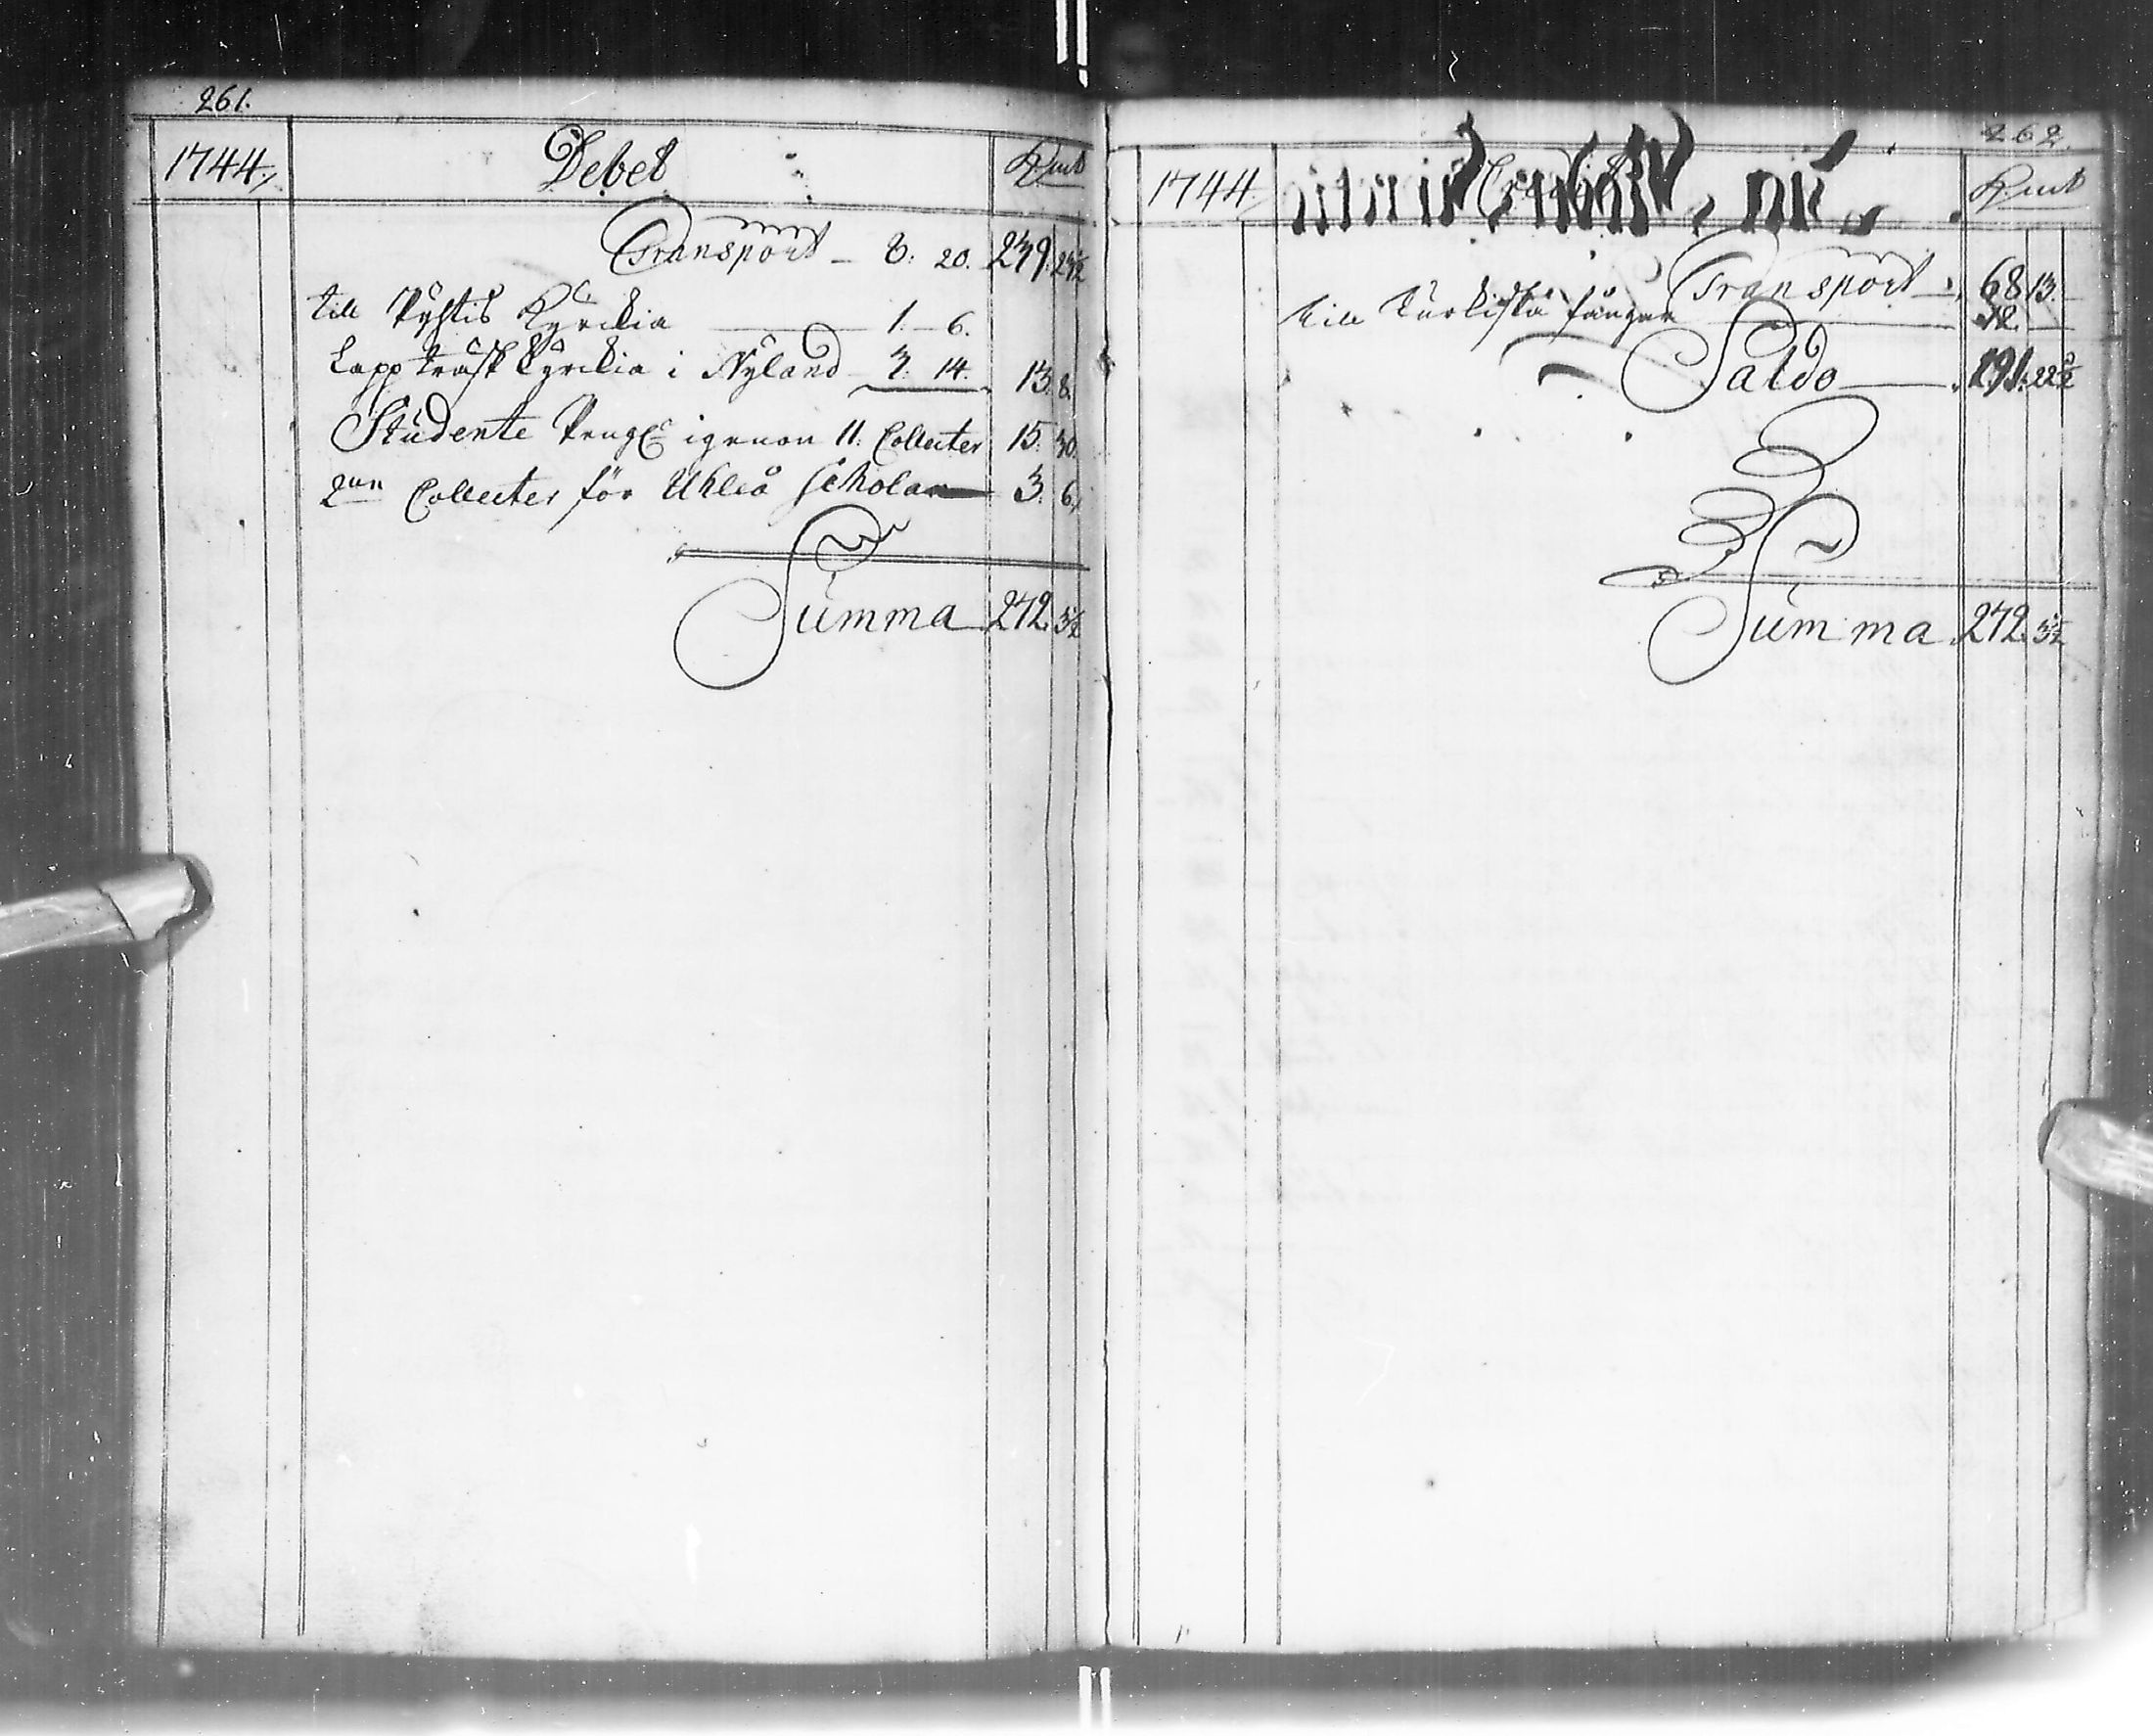 261.
1744. Debet Kmt
Transport - 8: 20. 239: 24½
till Pyhtis Kyrckia 1. 6.
Lappträsk Kyrckia i Nyland 3: 14. 13: 8.
Studente Peng^r igenon 11. Collecter 15. 30.
2^ne Collecter för Uhleå Scholan 3: 6.
Summa 272. 3½
262.
1744. Kmt
Transport 68 13.
till turkiska fångar 12.
Saldo 191. 22½
Summa 272. 3½